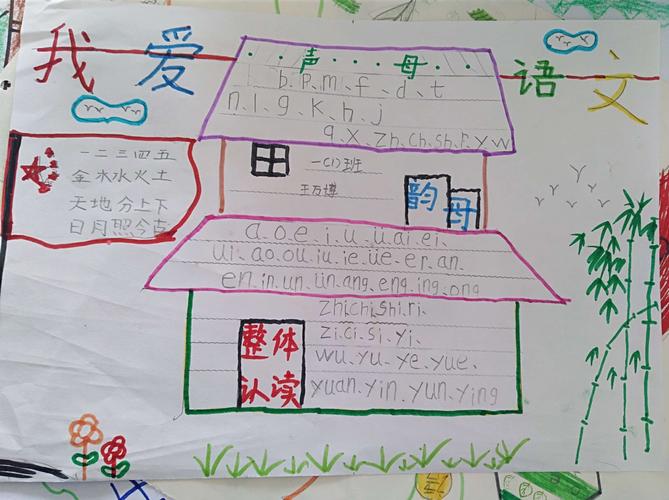 我爱语文
声母
b、p、m、f、d、t
n、l、g、k、h、j
q、x、zh、ch、sh、r、y、w
一(1)班
韵母
一二三四五
金木水火土
天地分上下
日月照今古
a、o、e、i、u、ü、ai、ei、
ui、ao、ou、iu、ie、üe、er、an、
en、in、un、ün、ang、eng、ing、ong
整体
认读
zhi、chi、shi、ri、
zi、ci、si、yi、
wu、yu、ye、yue、
yuan、yin、yun、ying